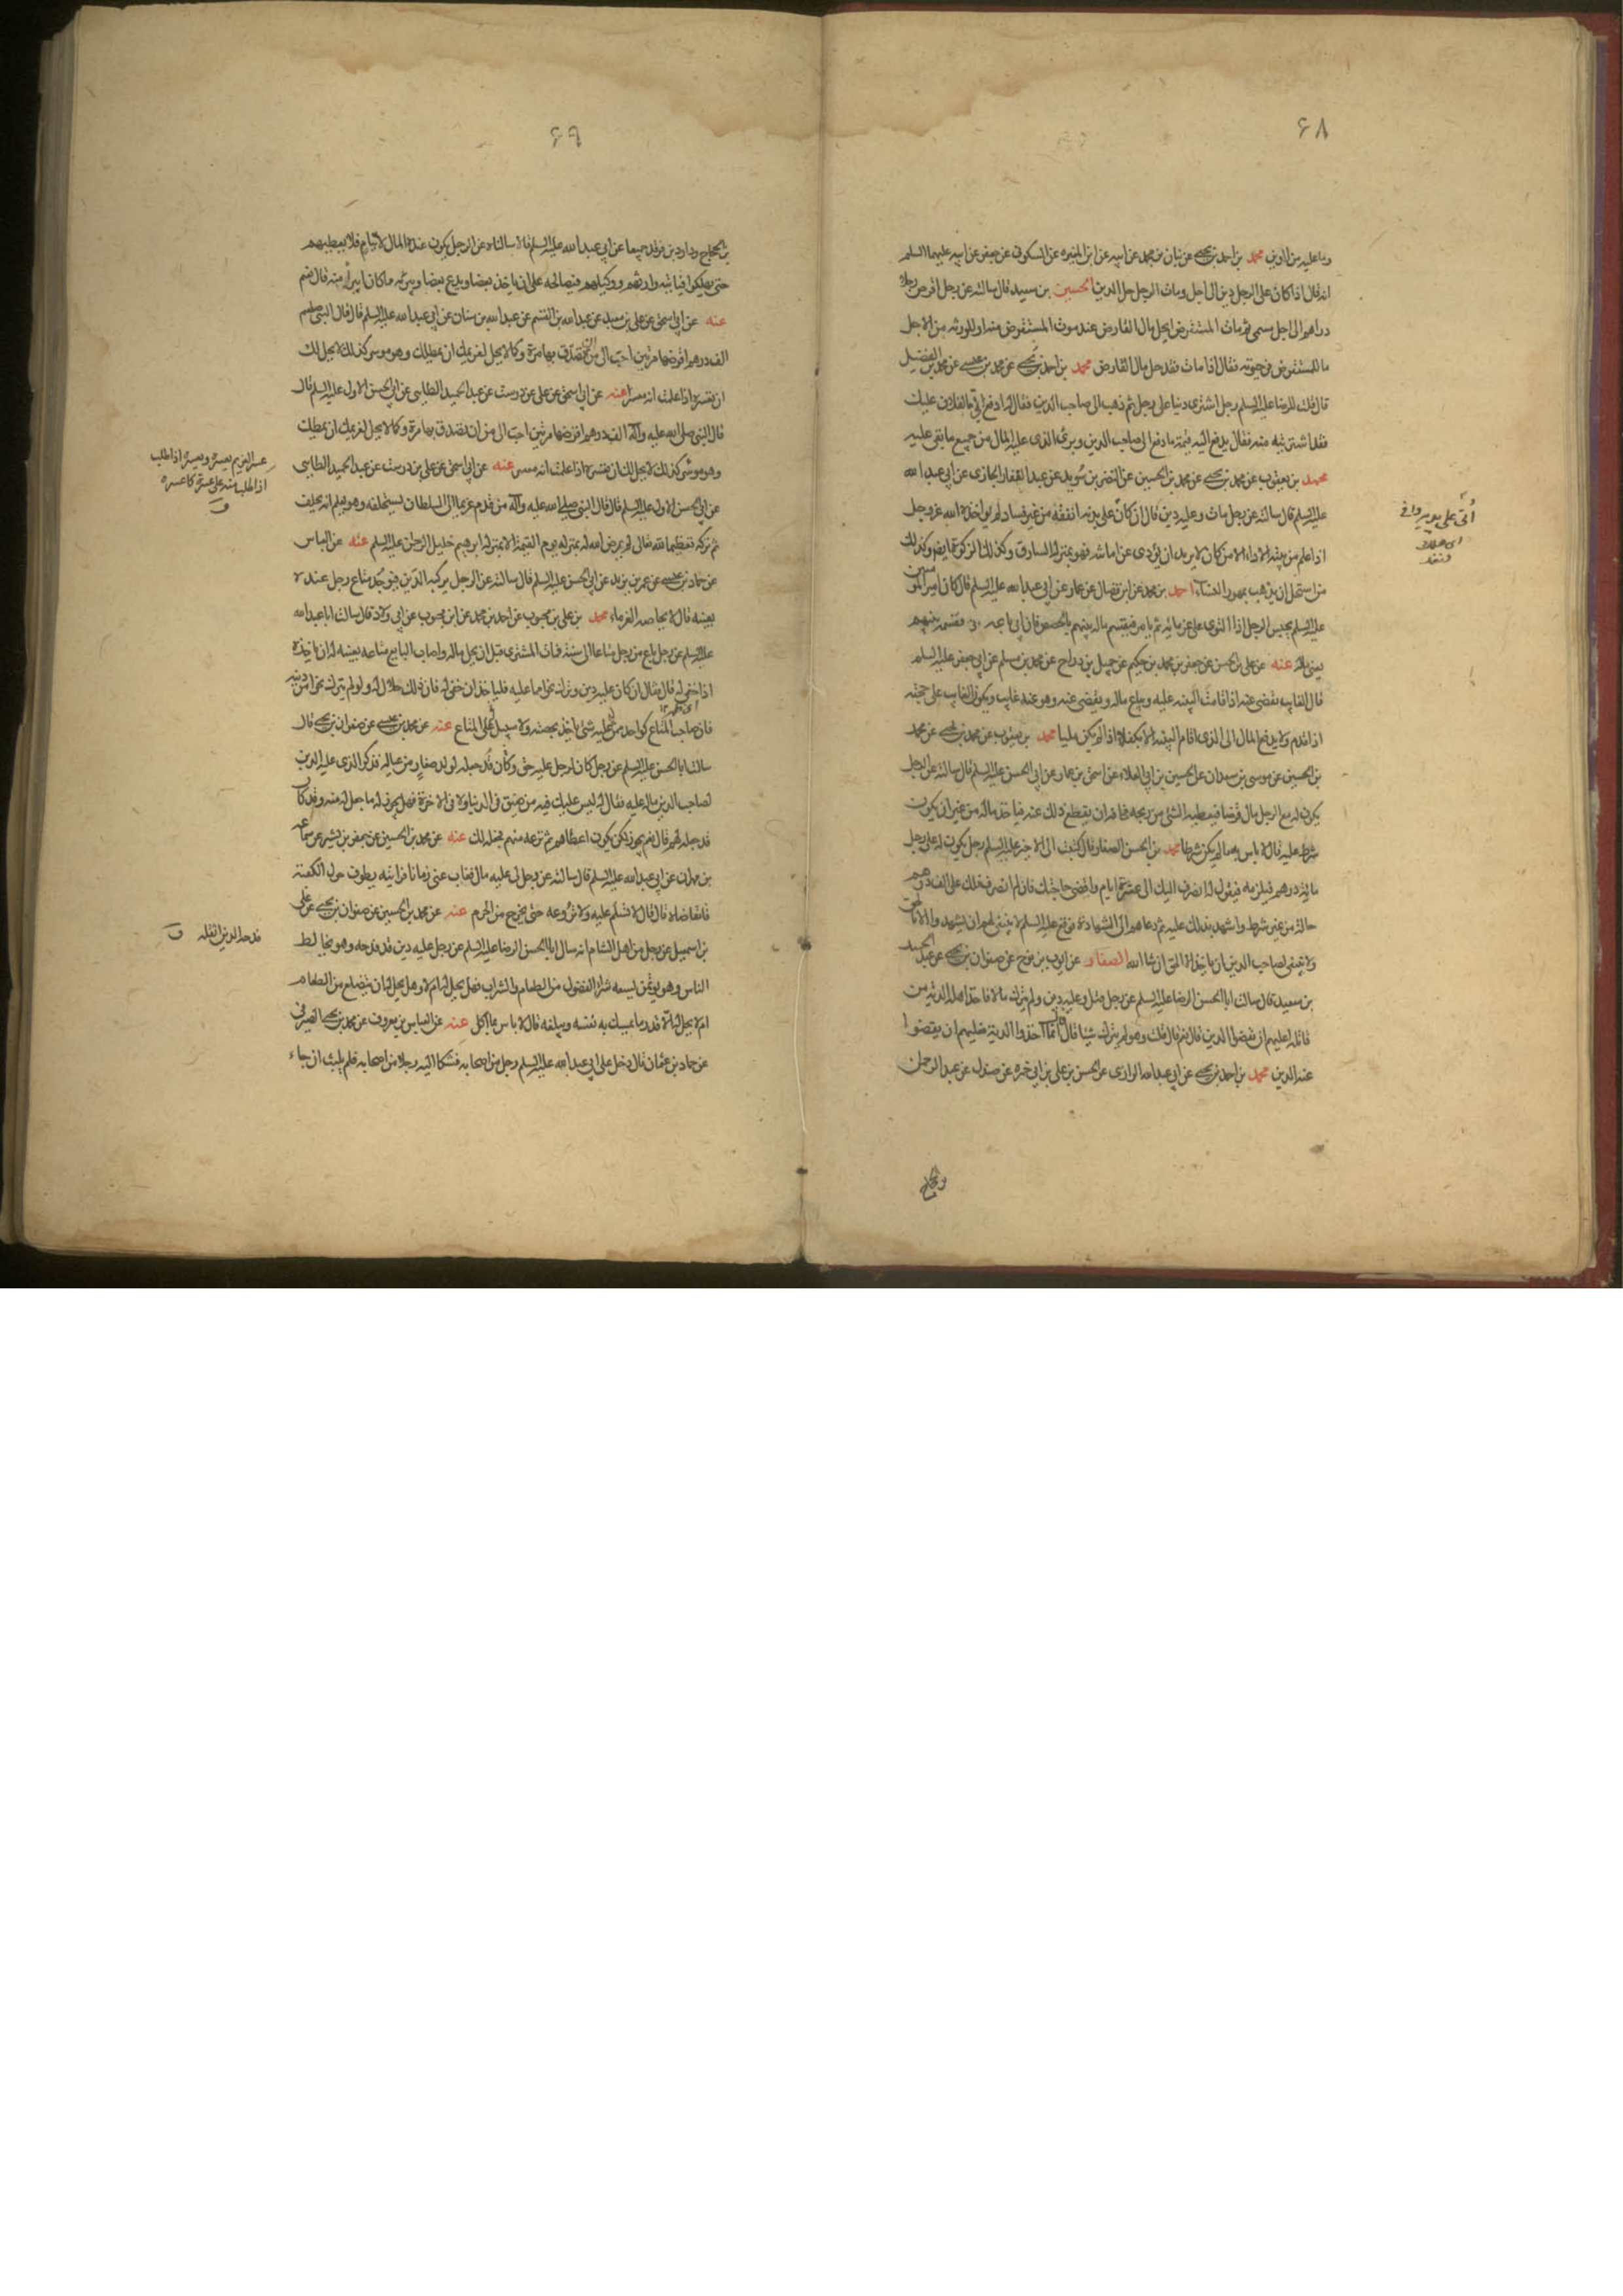 ۶۸
وما عليه من الدين محمد بن احمد بن يحيى عن بنان بن محمد عن ابيه عن ابن المغيره عن السكونى عن جعفر عن ابيه عليهما السلم
انه قال اذا كان على الرجل دين الى اجل ومات الرجل حل الدين الحسين بن سعيد قال سالته عن رجل اقرض رجلا
دراهم الى اجل مسمى ثم مات المستقرض ايحل مال القارض عند موت المستقرض منه او للورثه من الاجل
ما للمستقرض فى حيوته فقال اذا مات فقد حل مال القارض محمد بن احمد بن يحيى عن محمد بن عيسى عن محمد بن الفضيل
قال قلت للرضا عليه السلم رجل اشترى دينا على رجل ثم ذهب الى صاحب الدين فقال له ادفع الى ما لفلان عليك
فقد اشتريته منه فقال يدفع اليه قيمة ما دفع الى صاحب الدين وبرئ الذى عليه المال من جميع ما بقى عليه
محمد بن يعقوب عن محمد بن يحيى عن محمد بن الحسين عن النضر بن سويد عن عبد الغفار الجازى عن ابى عبد الله
عليه السلم قال سالته عن رجل مات وعليه دين قال ان كان على بدنه انفقه من غير فساد لم يواخذه الله عز وجل
اذا علم من نيته الاداء الا من كان لا يريد ان يؤدى عن امانته فهو بمنزلة السارق وكذلك الزكوة ايضا وكذلك
من استحل ان يذهب بمهور النساء احمد بن محمد عن ابن فضال عن عمار عن ابى عبد الله عليه السلم قال كان امير المؤمنين
عليه السلم يحبس الرجل اذا التوى على غرمائه ثم يامر فيقسم ماله بينهم بالحصص فان ابى باعه فقسمه بينهم
يعنى ماله عنه عن على بن الحسن عن جعفر بن محمد بن حكيم عن جميل بن دراج عن محمد بن مسلم عن ابى جعفر عليه السلم
قال الغايب يقضى عنه اذا قامت البينه عليه ويباع ماله ويقضى عنه وهو عنه غايب ويكون الغايب على حجته
اذا قدم ولا يدفع المال الى الذى اقام البينه الا بكفلاء اذا لم يكن مليا محمد بن يعقوب عن محمد بن يحيى عن محمد
بن الحسين عن موسى بن سعدان عن الحسين بن ابى العلاء عن اسحق بن عمار عن ابى الحسن عليه السلم قال سالته عن الرجل
يكون له مع الرجل مال قرضا فيعطيه الشئ من ربحه مخافة ان يقطع ذلك عنه فياخذ ماله من غير ان يكون
شرط عليه قال لا باس به ما لم يكن شرطا محمد بن الحسن الصفار قال كتبت الى الاخير عليه السلم رجل يكون له على رجل
مائة درهم فيلزمه فيقول له انصرف اليك الى عشرة ايام واقضى حاجتك فان لم انصرف فلك على الف درهم
حالة من غير شرط واشهد بذلك عليه ثم دعاهم الى الشهادة فوقع عليه السلم لا ينبغى لهم ان يشهدوا الا بالحق
ولا ينبغى لصاحب الدين ان ياخذ الا الحق ان شا الله الصفار عن ايوب بن نوح عن صفوان بن يحيى عن عبد الحميد
بن سعيد قال سالت ابا الحسن الرضا عليه السلم عن رجل قتل وعليه دين ولم يترك مالا فاخذ اهله الدية من
قاتله اعليهم ان يقضوا الدين قال نعم قال قلت وهو لم يترك شيئا قال انما اخذوا الدية فعليهم ان يقضوا
عنه الدين محمد بن احمد بن يحيى عن ابى عبد الله الرازى عن الحسن بن على بن ابى حمزه عن صندل عن عبد الرحمن
اى هلاك
۶۹
بن الحجاج وداود بن فرقد جميعا عن ابى عبد الله عليه السلم قالا سالناه عن الرجل يكون عنده المال لايتام فلا يعطيهم
حتى يهلكوا فياتيه وارثهم ووكيلهم فيصالحه على ان ياخذ بعضا ويدع بعضا ويبرئه مما كان ايبرأ منه قال نعم
عنه عن ابى اسحق عن على بن سعيد عن عبد الله بن القسم عن عبد الله بن سنان عن ابى عبد الله عليه السلم قال قال النبى صلعم
الف درهم اقرضها مرتين احب الى من ان اتصدق بها مرة وكما لا يحل لغريمك ان يمطلك وهو موسر كذلك لا يحل لك
ان تعسره اذا علمت انه معسر عنه عن ابى اسحق عن على عن درست عن عبد الحميد الطائى عن ابى الحسن الاول عليه السلم قال
قال النبى صلى الله عليه وآله الف درهم اقرضها مرتين احب الى من ان اتصدق بها مرة وكما لا يحل لغريمك ان يمطلك
وهو موسر كذلك لا يحل لك ان تعسره اذا علمت انه معسر عنه عن ابى اسحق عن على بن درست عن عبد الحميد الطائى
عن ابى الحسن الاول عليه السلم قال قال النبى صلى الله عليه وآله من قدم غريما الى السلطان يستحلفه وهو يعلم انه يحلف
ثم تركه تعظيما لله تعالى لم يرض الله له بمنزلة يوم القيمة الا بمنزلة ابرهيم خليل الرحمن عليه السلم عنه عن العباس
عن حماد بن عيسى عن عمر بن يزيد عن ابى الحسن عليه السلم قال سالته عن الرجل يركبه الدين فيوجد متاع رجل عنده
بعينه قال لا يحاصه الغرماء محمد بن على بن محبوب عن احمد بن محمد عن ابن محبوب عن ابى ولاد قال سالت ابا عبد الله
عليه السلم عن رجل باع من رجل متاعا الى سنة فمات المشترى قبل ان يحل ماله واصاب البايع متاعه بعينه له ان ياخذه
اذا خفى له قال فقال ان كان عليه دين وترك نحوا مما عليه فلياخذ ان خفى له فان ذلك حلال له ولو لم يترك نحوا من دينه
فان صاحب المتاع كواحد ممن له عليه شئ ياخذ بحصته ولا سبيل له على المتاع عنه عن محمد بن عيسى عن صفوان بن يحيى قال
سالت ابا الحسن عليه السلم عن رجل كان لرجل عليه حق وكان قد جعله لولد صغار من عياله فذكر الذى عليه الدين
لصاحب الدين ماله عليه فقال له ليس عليك فيه من ضيق فى الدنيا ولا فى الاخرة فهل يجوز له ما جعل له منه وقد كان
قد جعله لهم قال نعم يجوز لكن يكون اعطاهم ثم نزعه منهم فجعله لك عنه عن محمد بن الحسين عن جعفر بن بشير عن سماعه
بن مهران عن ابى عبد الله عليه السلم قال سالته عن رجل لى عليه مال فغاب عنى زمانا فرايته يطوف حول الكعبة
فاتقاضاه قال قال لا تسلم عليه ولا تروعه حتى يخرج من الحرم عنه عن محمد بن الحسين عن صفوان بن يحيى عن على
بن اسمعيل عن رجل من اهل الشام انه سال ابا الحسن الرضا عليه السلم عن رجل عليه دين قد فدحه وهو يخالط
الناس وهو يؤتمن ليسعه شراء الفضول من الطعام والشراب فهل يحل له ام لا وهل يحل له ان يتضلع من الطعام
ام لا يحل له الا قدر ما يمسك به نفسه ويبلغه قال لا باس بما اكل عنه عن العباس بن معروف عن محمد بن يحيى الصيرفى
عن حماد بن عثمان قال دخل على ابى عبد الله عليه السلم رجل من اصحابه فشكا اليه رجلا من اصحابه فلم يلبث ان جاء
عسر الغريم يعسره ويعسره اذا طلب
فدحه الدين اثقله ق